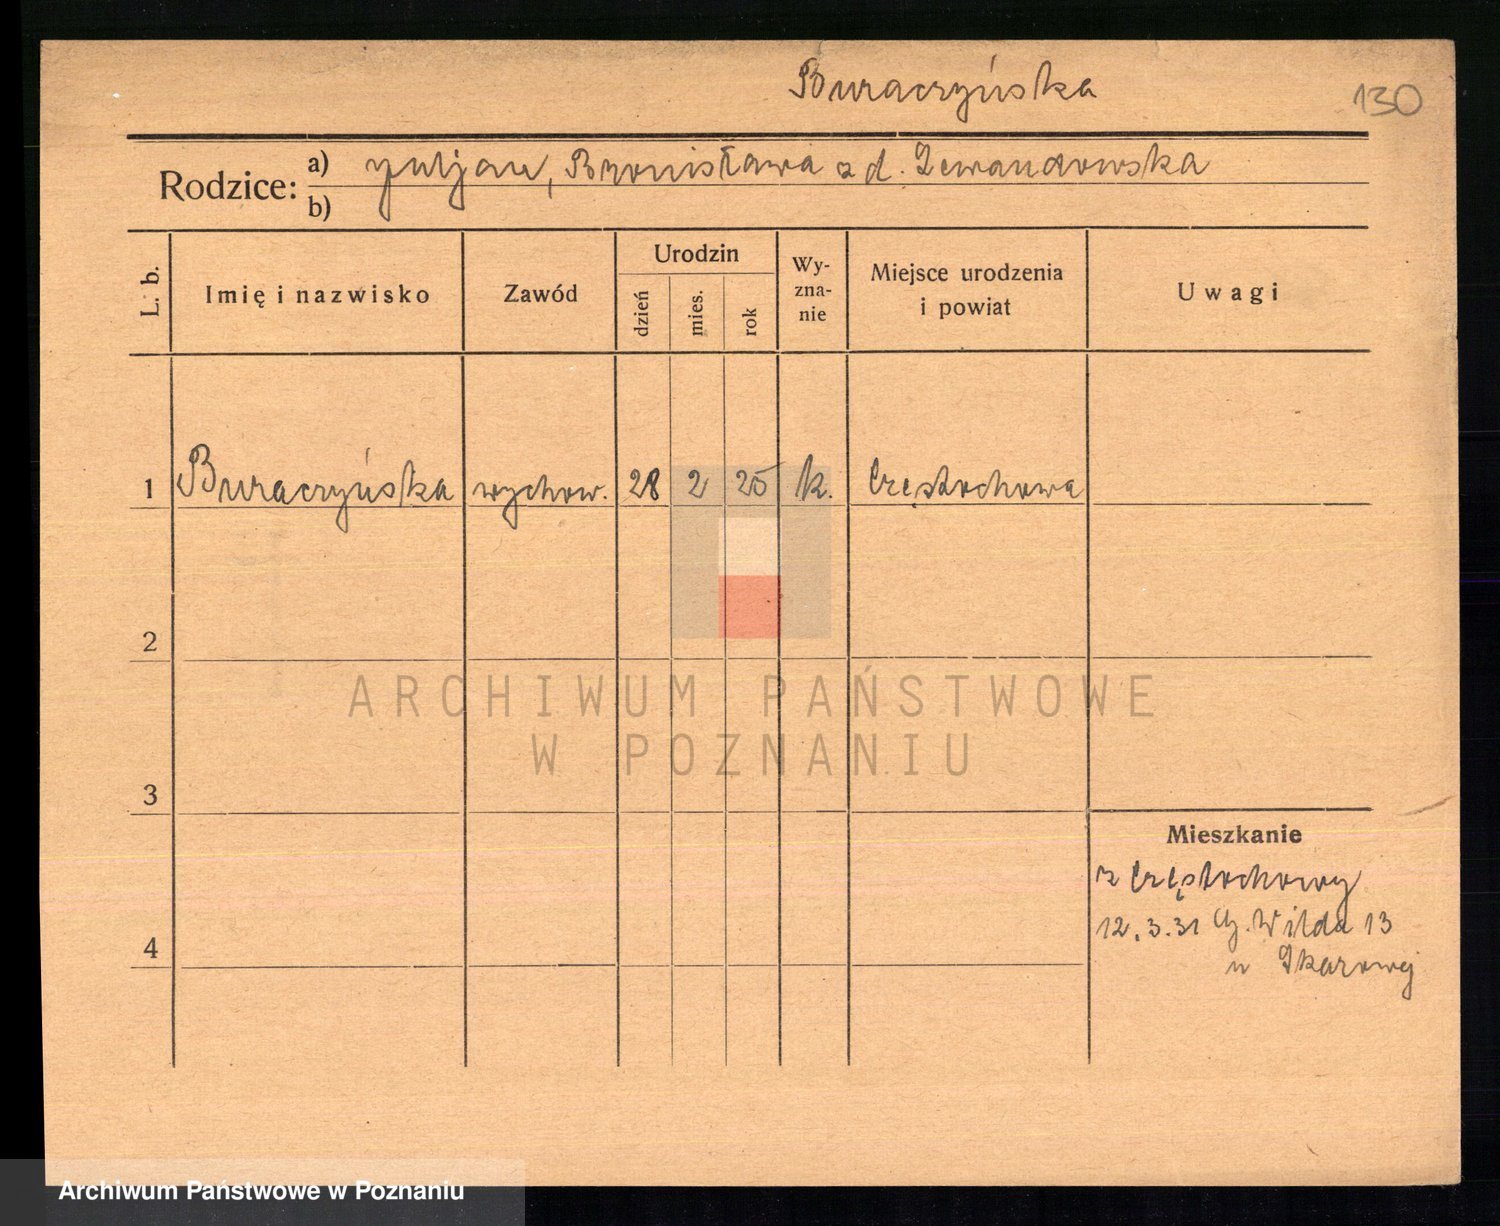 Buraczyńska
130
Rodzice: a) Juljan, Bronisława z d. Lewandowska
b)
L. b. Imię i nazwisko Zawód Urodzin dzień mies. rok Wy-zna-nie Miejsce urodzenia i powiat Uwagi
1 Buraczyńska wychow. 28 2 25 k. Częstochowa
2
ARCHIWUM PAŃSTWOWE
W POZNANIU
3
Mieszkanie
z Częstochowy
12.3.31 Wilda 13
4
u
Archiwum Państwowe w Poznaniu